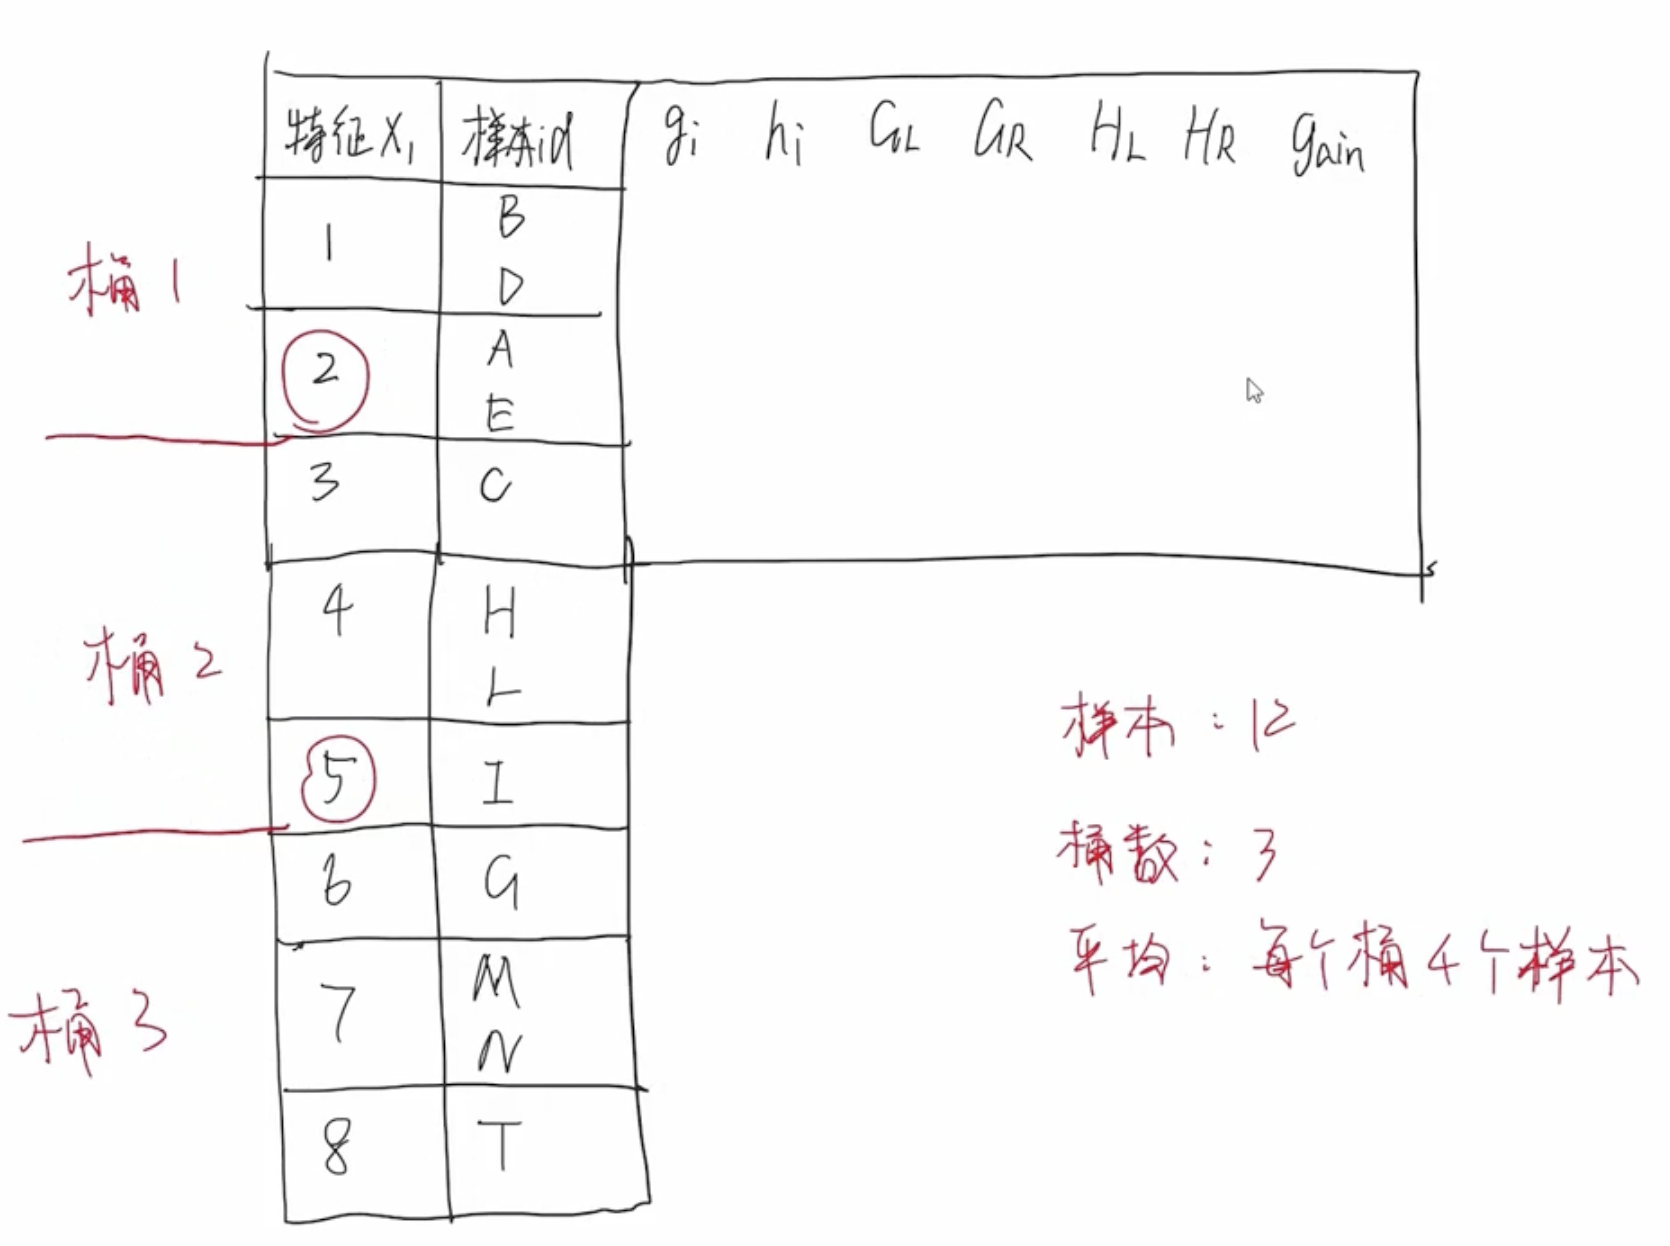 特征X₁ 样本id gi hi GL GR HL HR gain
1 B
D
桶1
2 A
E
3 C
4 H
L
桶2
5 I
6 G
7 M
N
桶3
8 T
样本:12
桶数:3
平均:每个桶4个样本